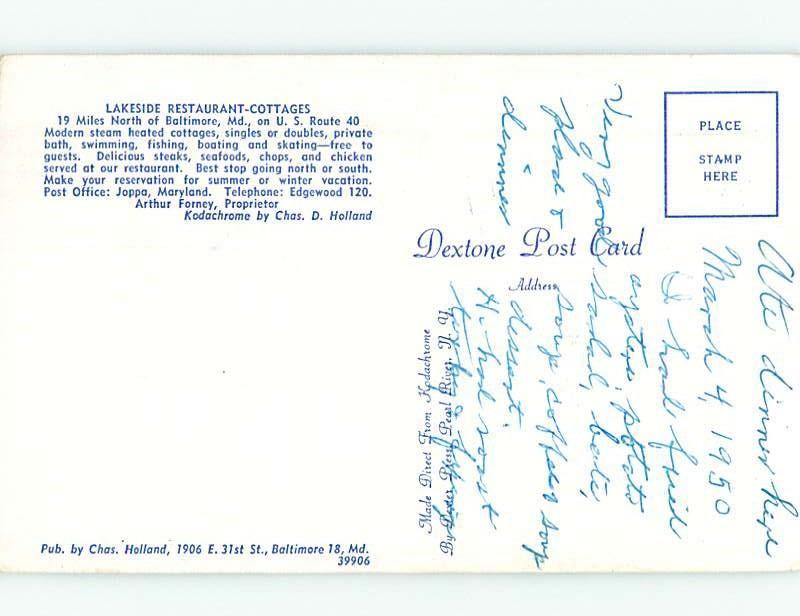 LAKESIDE RESTAURANT-COTTAGES
19 Miles North of Baltimore, Md., on U. S. Route 40
Modern steam heated cottages, singles or doubles, private
bath, swimming, fishing, boating and skating—free to
guests. Delicious steaks, seafoods, chops, and chicken
served at our restaurant. Best stop going north or south.
Make your reservation for summer or winter vacation.
Post Office: Joppa, Maryland. Telephone: Edgewood 120.
Arthur Forney, Proprietor
Kodachrome by Chas. D. Holland
Pub. by Chas. Holland, 1906 E. 31st St., Baltimore 18, Md.
39906
Dextone Post Card
Address
Made Direct From Kodachrome
By Dexter Press, Pearl River, N. Y.
PLACE
STAMP
HERE
Ate dinner here
March 4, 1950
I had fried
oysters, potato
salad,
soup, coffee &
dessert.
H. had roast
Very good
food &
dinner